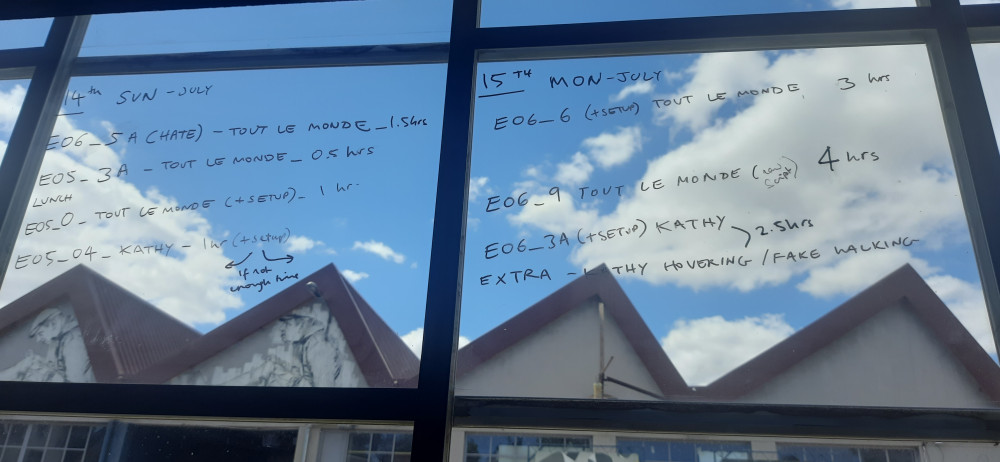 14th SUN - JULY
E06_5A (HATE) - TOUT LE MONDE _ 1.5hrs
E05_3A - TOUT LE MONDE _ 0.5 hrs
LUNCH
E05_0 - TOUT LE MONDE (+SETUP) - 1 hr.
E05_04_ KATHY - 1hr (+setup)
if not
enough time
15TH MON - JULY
E06_6 (+SETUP) TOUT LE MONDE 3 hrs
E06_9 TOUT LE MONDE ( script) 4 hrs
E06_3A (+SETUP) KATHY 2.5hrs
EXTRA - KATHY HOVERING / FAKE WALKING